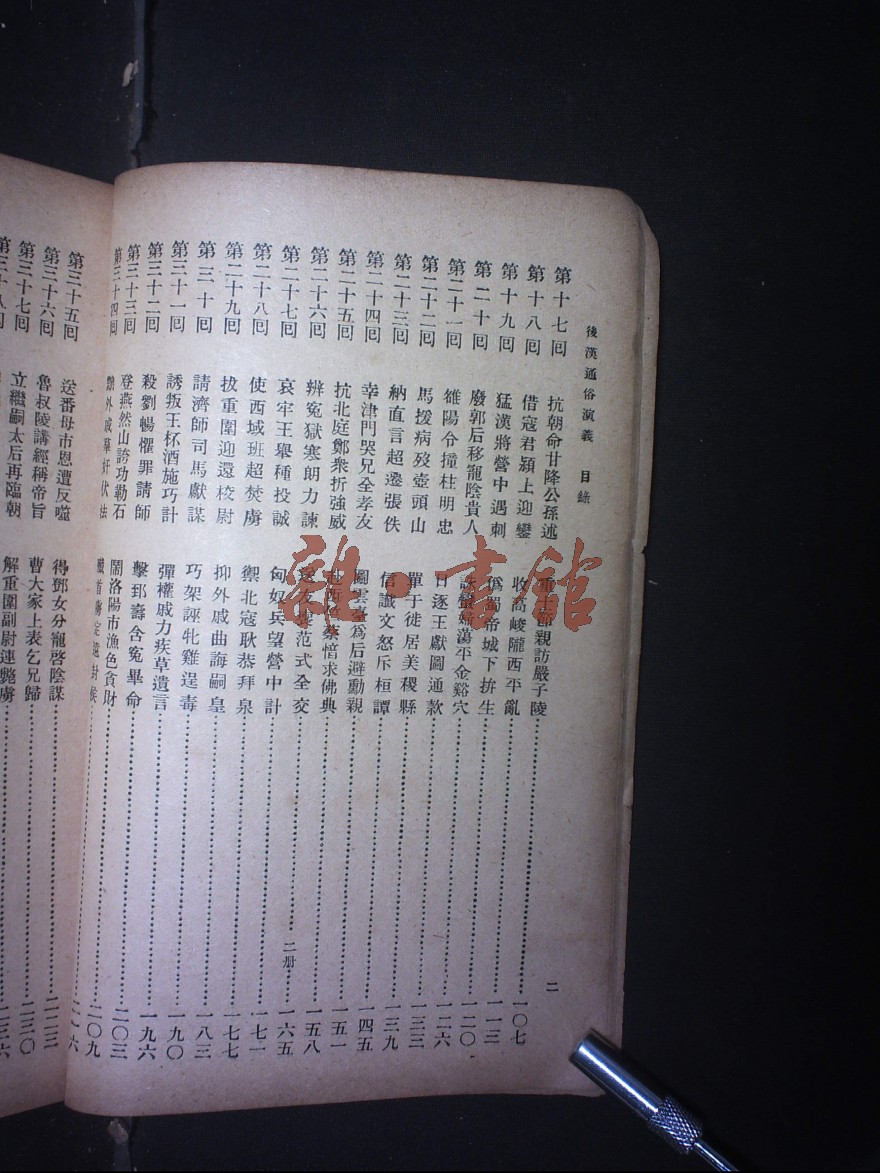 後漢通俗演義 目錄
二
第十七囘 抗朝命甘降公孫述 重 親訪嚴子陵 一〇七
第十八囘 借寇君潁上迎鑾 收高峻隴西平亂 一一三
第十九囘 猛漢將營中遇刺 僞蜀帝城下拚生 一二〇
第二十囘 廢郭后移寵陰貴人 蕩平金谿穴 一二六
第二十一囘 雒陽令撞柱明忠 日逐王獻圖通款 一三三
第二十二囘 馬援病歿壺頭山 單于徙居美稷縣 一三九
第二十三囘 納直言超遷張佚 信讖文怒斥桓譚 一四五
第二十四囘 幸津門哭兄全孝友 圖雲臺爲后避勳親 一五一
第二十五囘 抗北庭鄭衆折強威 蔡愔求佛典 一五八
第二十六囘 辨冤獄寒朗力諫 范式全交 一六五
第二十七囘 哀牢王舉種投誠 匈奴兵望營中計 二册 一七一
第二十八囘 使西域班超焚虜 禦北寇耿恭拜泉 一七七
第二十九囘 拔重圍迎還校尉 抑外戚曲誨嗣皇 一八三
第三十囘 請濟師司馬獻謀 巧架誣牝雞逞毒 一九〇
第三十一囘 誘叛王杯酒施巧計 彈權戚力疾草遺言 一九六
第三十二囘 殺劉暢懼罪請師 擊郅壽含冤畢命 二〇三
第三十三囘 登燕然山誇功勒石 鬧洛陽市漁色貪財 二〇九
第三十四囘 外戚羣奸伏法 首 定 封侯 二一六
第三十五囘 送番母市恩遭反噬 得鄧女分寵啓陰謀 二二三
第三十六囘 魯叔陵講經稱帝旨 曹大家上表乞兄歸 二三〇
第三十七囘 立繼嗣太后再臨朝 解重圍副尉連斃虜 二三六
第三十八囘
雜·書館